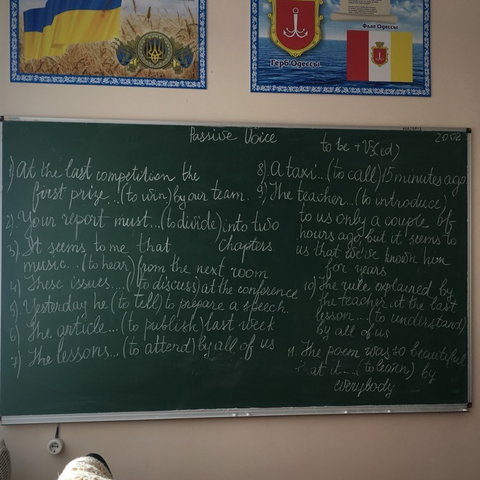 Герб Одессы
Флаг Одессы
Passive Voice
to be + V3(ed)
20.02
1) At the last competition the
first prize...(to win) by our team.
2) Your report must...(to divide) into two
chapters
3) It seems to me that
music...(to hear) from the next room
4) These issues....(to discuss) at the conference
5) Yesterday he (to tell) to prepare a speech.
6) The article...(to publish) last week
7) The lessons...(to attend) by all of us
8) A taxi...(to call) 15 minutes ago.
9) The teacher...(to introduce)
to us only a couple of
hours ago, but it seems to
us that we've known him
for years
10) The rule explained by
the teacher at the last
lesson...(to understand)
by all of us
11. The poem was so beautiful
that it....(to learn) by
everybody